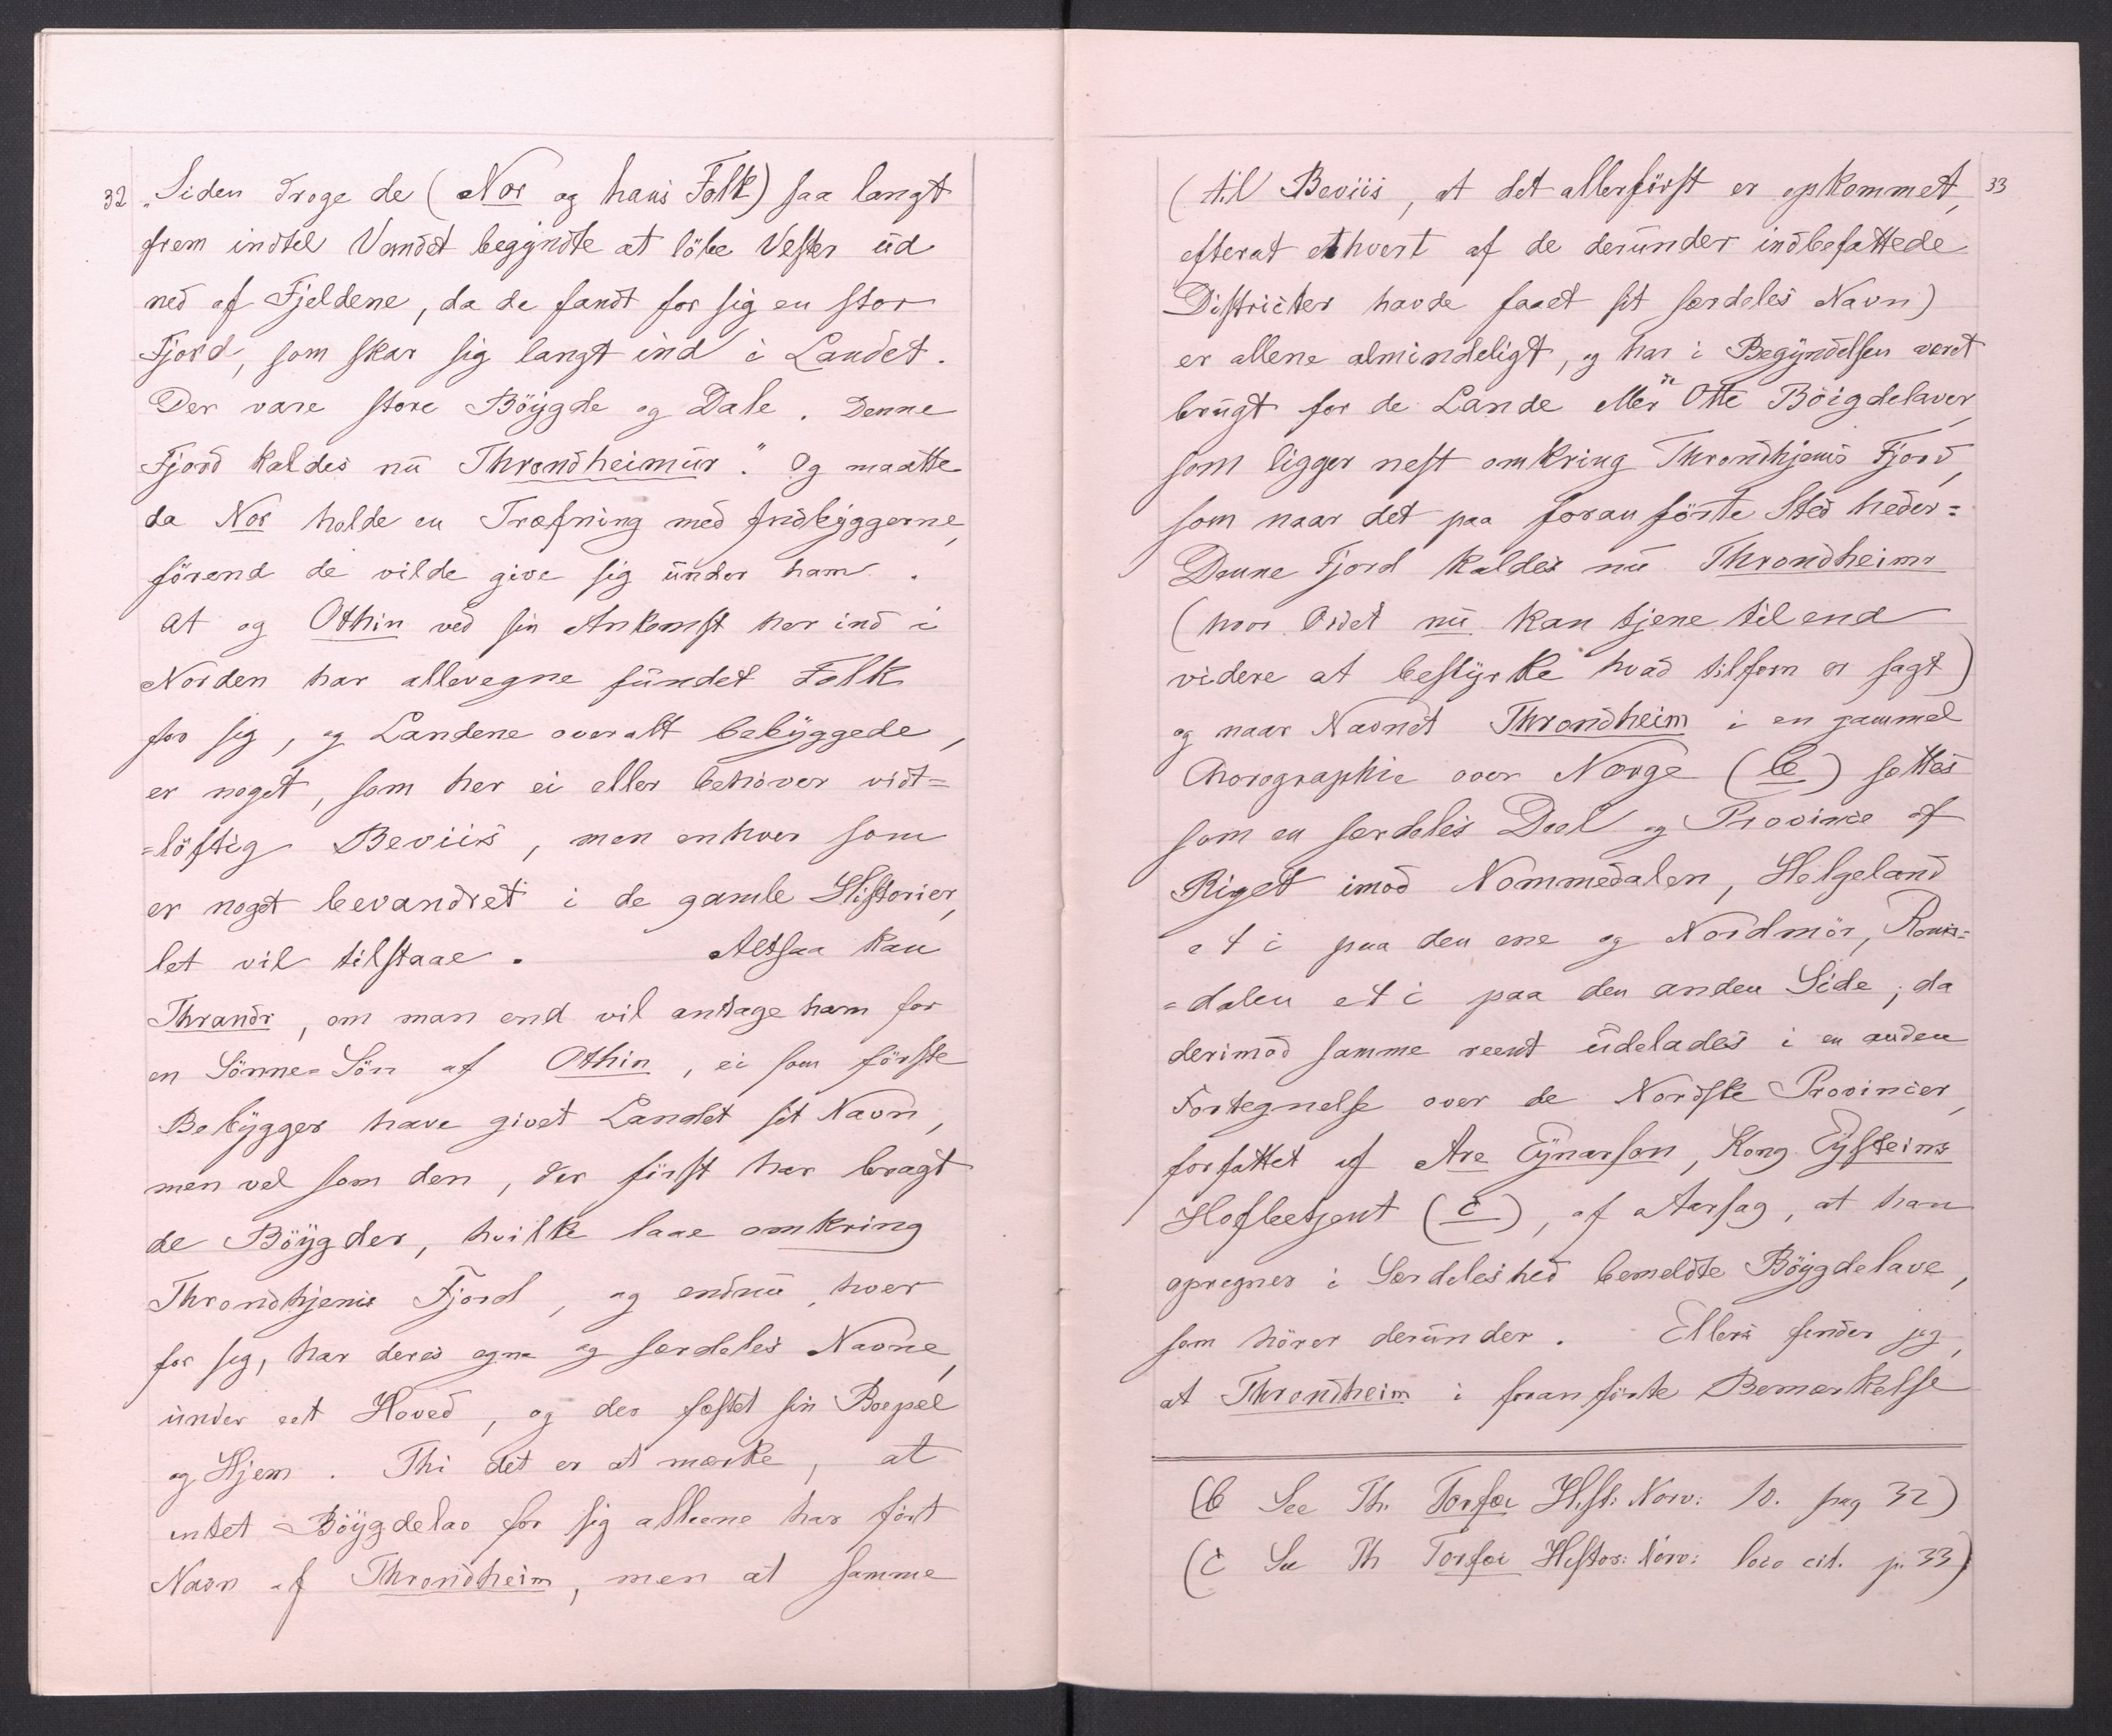 32 „Siden droge de (Nor og hans Folk) saa langt
frem indtil Vandet begyndte at löbe Vester ud
ned af Fjeldene, da de fandt for sig en stor
Fjord, som skar sig langt ind i Landet.
Der vare store Böygde og Dale. Denne
Fjord kaldes nu Throndheimur." Og maatte
da Nor holde en Træfning med Indbyggerne,
förend de vilde give sig under ham.
At og Othin ved sin Ankomst her ind i
Norden har allevegne fundet Folk
for sig, og Landene overalt bebyggede,
er noget, som her ei eller behöver vidt=
=löftig Beviis, men enhver som
er noget bevandret i de gamle Historier,
let vil tilstaae. Altsaa kan
Thrandr, om man end vil antage ham for
en Sönne=Sön af Othin, ei som förste
Bebygger have givet Landet sit Navn,
men vel som den, der först har bragt
de Böygder, hvilke laae omkring
Throndhjems Fjord, og endnu, hver
for sig, har deres egne og særdeles Navne,
under eet Hoved, og der fæstet sin Boepæl
og Hjem. Thi det er at mærke, at
intet Böygdelav for sig alleene har fört
Navn af Throndheim, men at samme
33
(til Beviis, at det allerförst er opkommet,
efterat ethvert af de derunder indbefattede
Districter havde faaet sit særdeles Navn)
er allene almindeligt, og har i Begyndelsen været
brugt for de Lande eller de Otte Böigdelaver,
som ligger nest omkring Throndhjems Fjord,
som naar det paa foranförte Sted heder=
Denne Fjord kaldes nu Throndheimr
(hvor Ordet nu kan tjene til end
videre at bestyrke hvad tilforn er sagt)
og naar Navnet Throndheim i en gammel
Chorographie over Norge (b) sættes
som en særdeles Deel og Province af
Riget imod Nommedalen, Helgeland
etc paa den ene og Nordmör, Roms=
=dalen etc paa den anden Side, da
derimod samme reent udelades i en anden
Fortegnelse over de Nordske Provincier,
forfattet af Are Eynarson, Kong Eysteins
Hofbetjent (c), af Aarsag, at han
opregner i Særdeleshed bemeldte Böygdelave,
som hörer derunder. Ellers finder jeg,
at Throndheim i foranförte Bemærkelse
(b See Th. Torfæi Hist: Norv: 10. pag 32)
(c See Th Torfæi Histor: Norv: loco cit. p. 33)